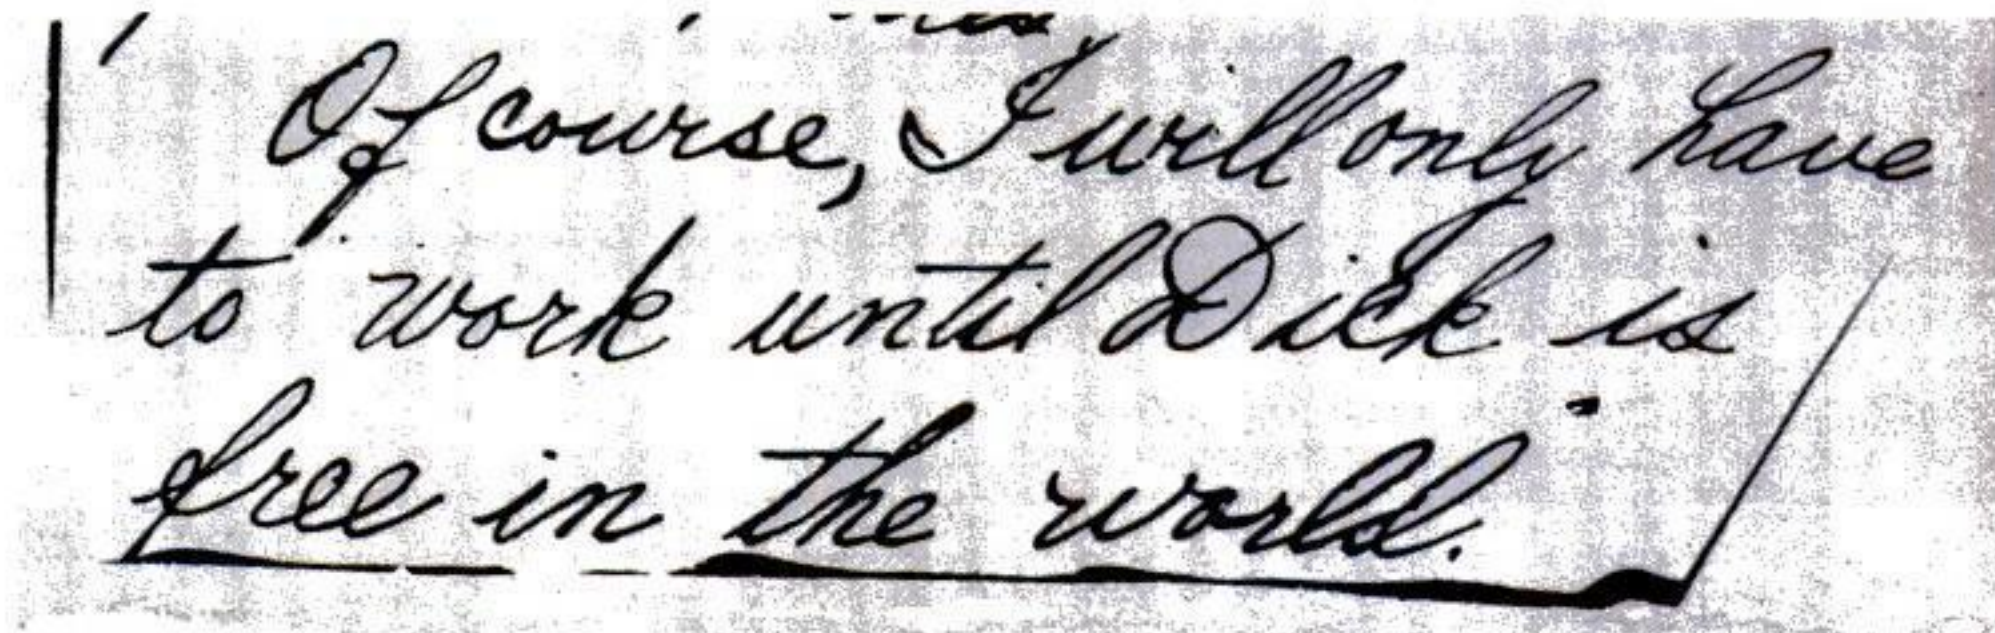 Of course, I will only have
to work until Dick is
free in the world.